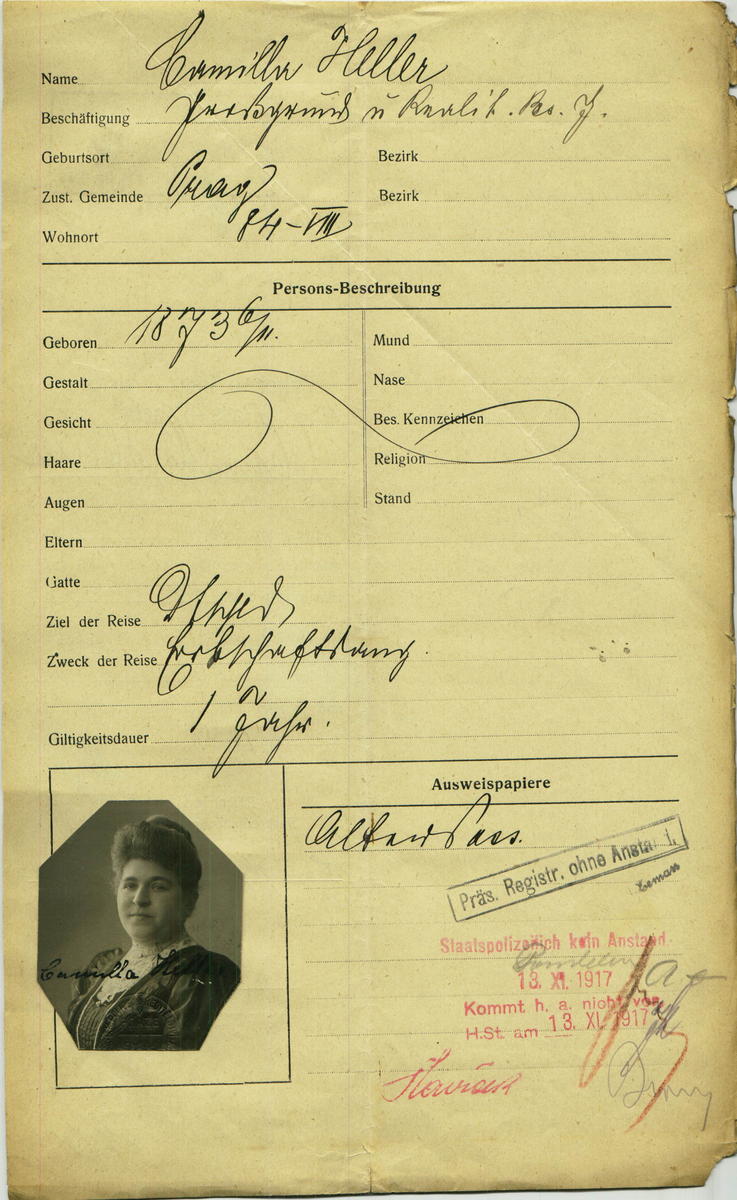 Name Camilla Heller
Beschäftigung Großgrund u Realit. Bes. G.
Geburtsort Bezirk
Zust. Gemeinde Prag Bezirk
Wohnort 84-VIII
Persons-Beschreibung
Geboren 1873 6/11.
Mund
Gestalt
Nase
Gesicht
Bes. Kennzeichen
Haare
Religion
Augen
Stand
Eltern
Gatte
Ziel der Reise Dtschld
Zweck der Reise Erbschaftsang.
Giltigkeitsdauer 1 Jahr.
Ausweispapiere
Alter Pass.
Präs. Registr. ohne Anstand i.
Staatspolizeilich kein Anstand.
13. XI. 1917
Kommt h. a. nicht vor
H.St. am 13. XI. 1917
Camilla Heller